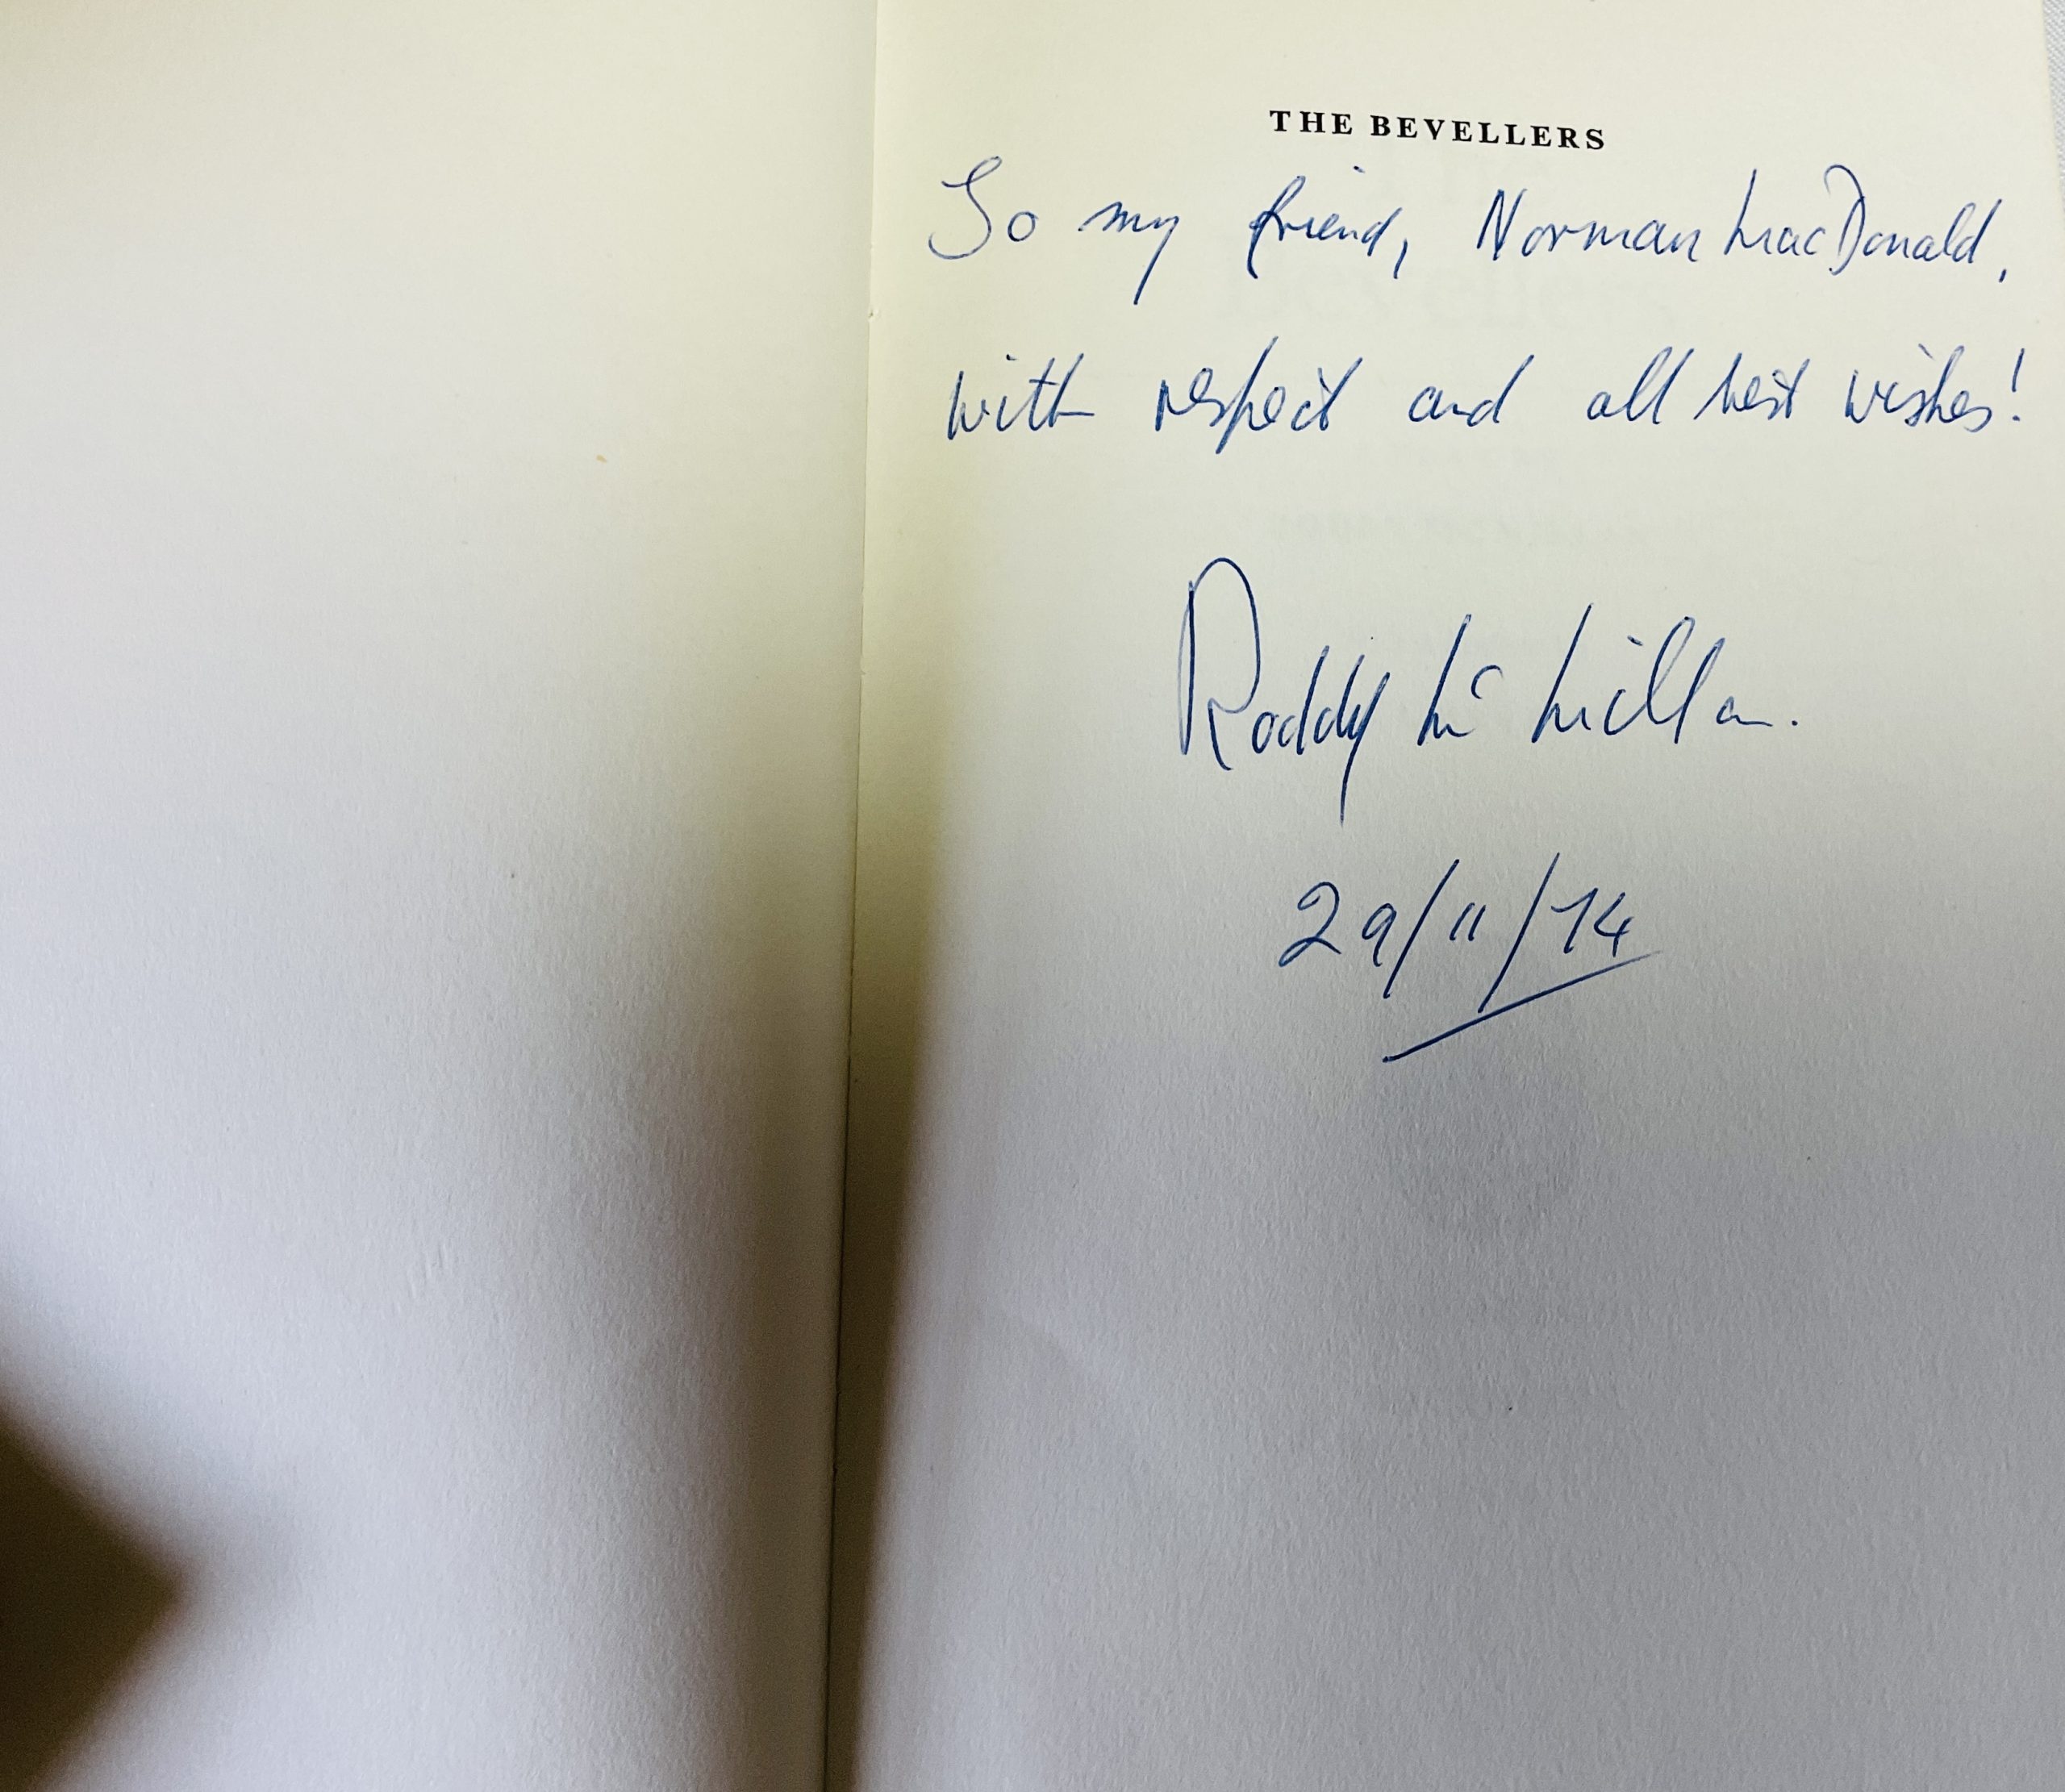 THE BEVELLERS
To my friend, Norman MacDonald,
with respect and all best wishes!
Roddy Mc Millan.
29/11/74